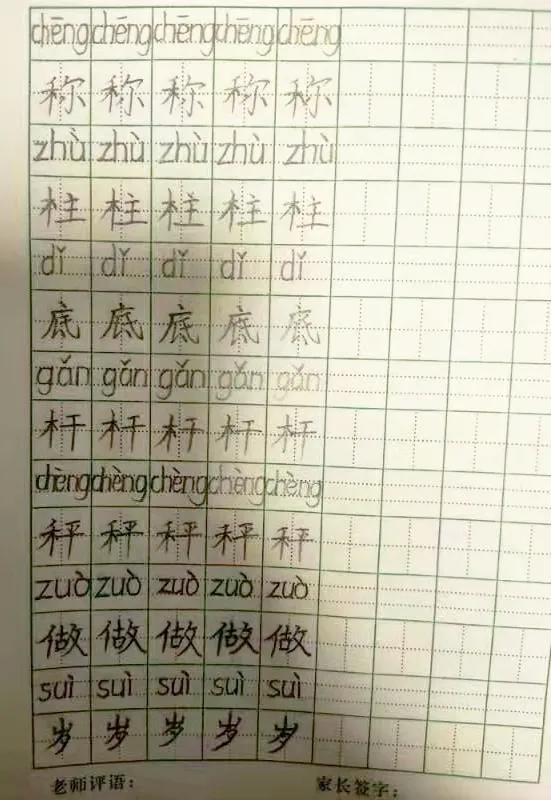 chēng chēng chēng chēng chēng
称 称 称 称 称
zhù zhù zhù zhù zhù
柱 柱 柱 柱 柱
dǐ dǐ dǐ dǐ dǐ
底 底 底 底 底
gǎn gǎn gǎn gǎn gǎn
杆 杆 杆 杆 杆
chèng chèng chèng chèng chèng
秤 秤 秤 秤 秤
zuò zuò zuò zuò zuò
做 做 做 做 做
suì suì suì suì suì
岁 岁 岁 岁 岁
老师评语： 家长签字：